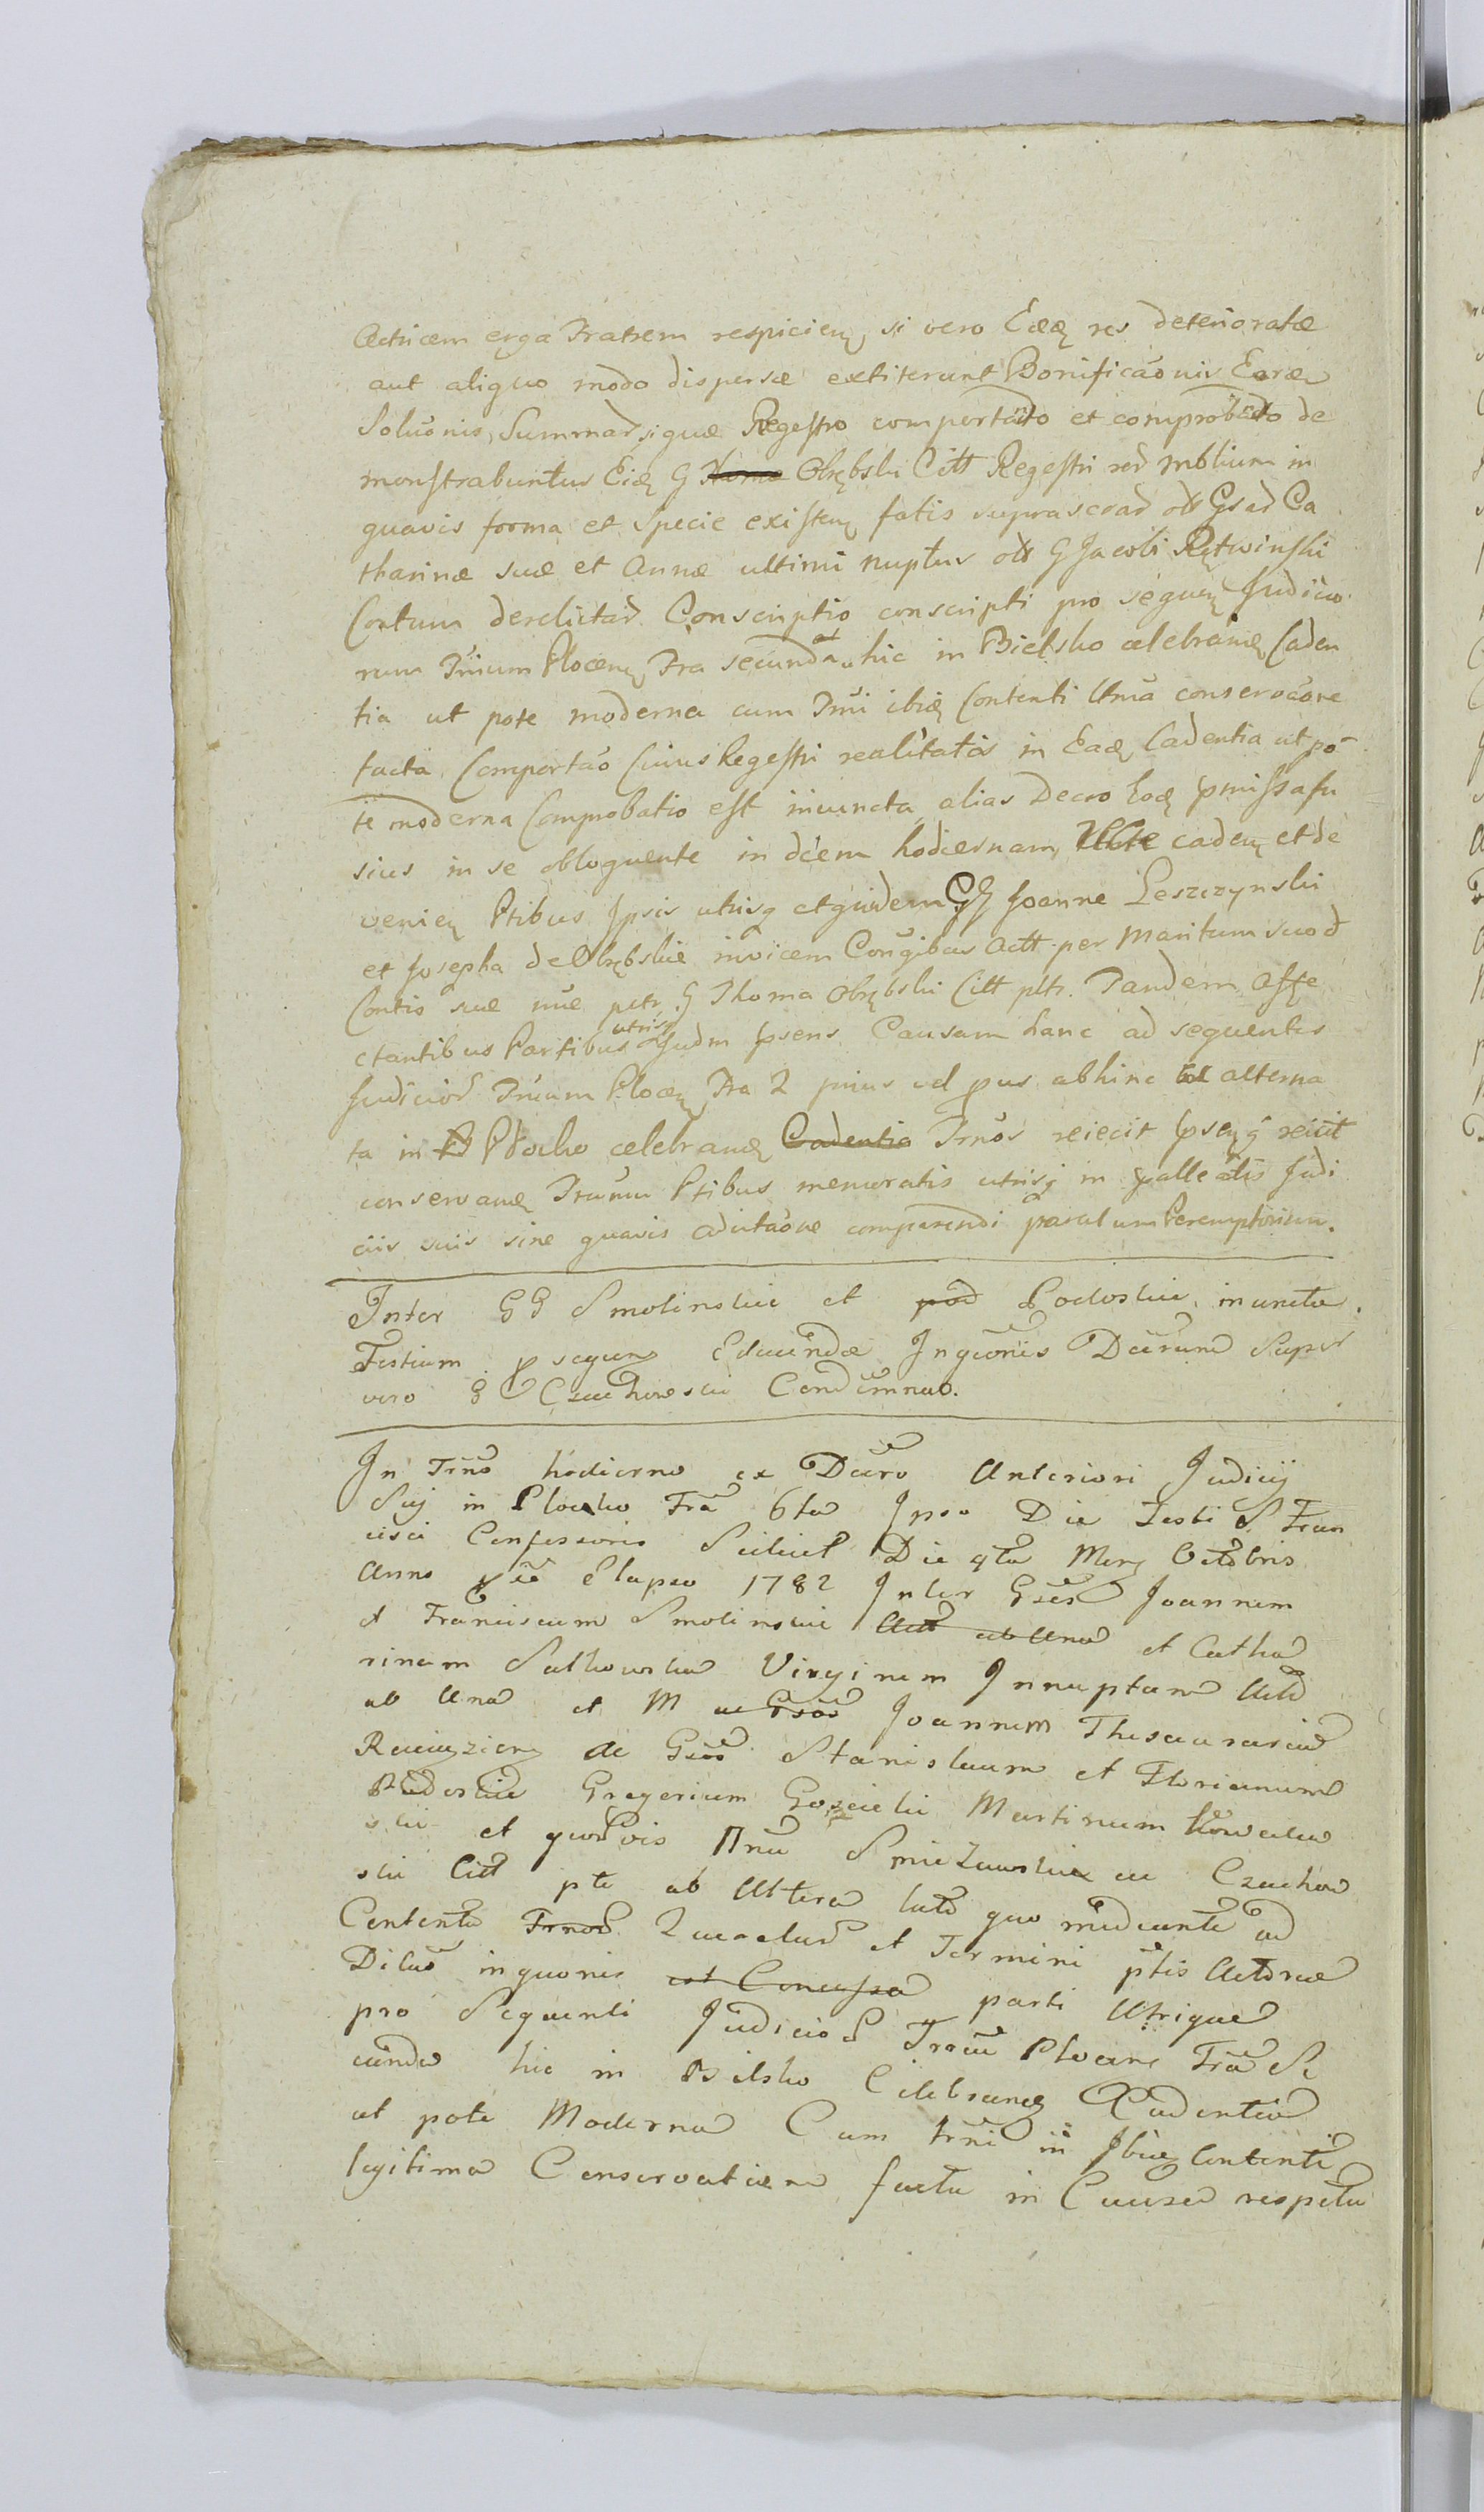 Actricem erga Fratrem respicien, si vero Eaed res deterioratæ
aut aliquo modo dispersæ extiterunt Bonificaōnis Earū
Soluōnis, Summar, si quæ Regestro comportādo et comprobādo de
monstrabuntur Eid G Obrębski Citt Regestri rer mblium in
quavis forma et specie existen fatis suprascrar olr Gsar Ca
tharinæ suæ et Annæ ultimi nuptus olr G Jacobi Rętwinski
Contum derelictar Conscriptio conscripti pro sequen Judicio
rum Trrium Plocen Fra secunda hic in Bielsko celebranđ Caden
tia ut pote moderna cum Trni ibiđ Contenti Ltma conservaōne
facta, Comportaō Cuius Regestri realitatis in Eađ Cadentia ut po
te moderna Comprobatio est iniuncta, alias Decro Eođ pmissa fu
sius in se obloquente in diem hodiernam, caden et de
venien Ptibus Ipsis utrisq et quidem GG Joanne Leszczynski
et Josepha de Obrębskie invicem Conjugibus Actt per Maritum suo d
Contis suæ nue petr G Thoma Obrębski Citt pltr. Tandem Affe
ctantibus Partibus utrisq Judm psens Causam hanc ad sequentes
Judicior Trrium Plocen Fra 2 prius vel pus abhinc alterna
ta in Plocko celebranđ Cadentia Trnos reiecit psenq reiicit
conservanđ Trnum Ptibus memoratis utrisq in palleatis Judi
ciis suis sine quavis aducitaōne comparendi paratum Peremptorium.
Inter GG Smolinskie et pod Podoskie, inuncta.
Testium p sequens Educendæ Inquonis Decrum Super
vero G Czachowski Condemnao.
In Trno hodierno ex Decro Anteriori Judicij
Sui in Plocko Fra 6ta Ipso Die Festi S. Fran
cisci Confessoris Scilicet Die 4ta Mens Octobris
Anno pte Elapso 1782 Inter Gsos Joannem
et Franciscum Smolinskie Actt ab Una et Catha
rinam Sutkowska Virginem Innuptam Actt
ab Una et M ac Gsos Joannem Thesaurariu
Raciąziens ac Gsos Stanislaum et Florianum
Podoskie Gregorium Goscicki Martinum Kowalew
ski et quosvis Nna Smieżewskie ac Czachow
ski Citt pte ab Altera lato quo mediante ad
Contenta Trnor 2 Actur et Termini ptis Actoreæ
Diluō inquonis est Concessa parti Utrique
pro Sequenti Judicior Trriu Plocens Fra Se
cunda hic in Bilsko Celebranđ Cadentia
ut pote Moderna Cum trni in Ibid Contenti
legitima Conservatione facta in Causa respectu